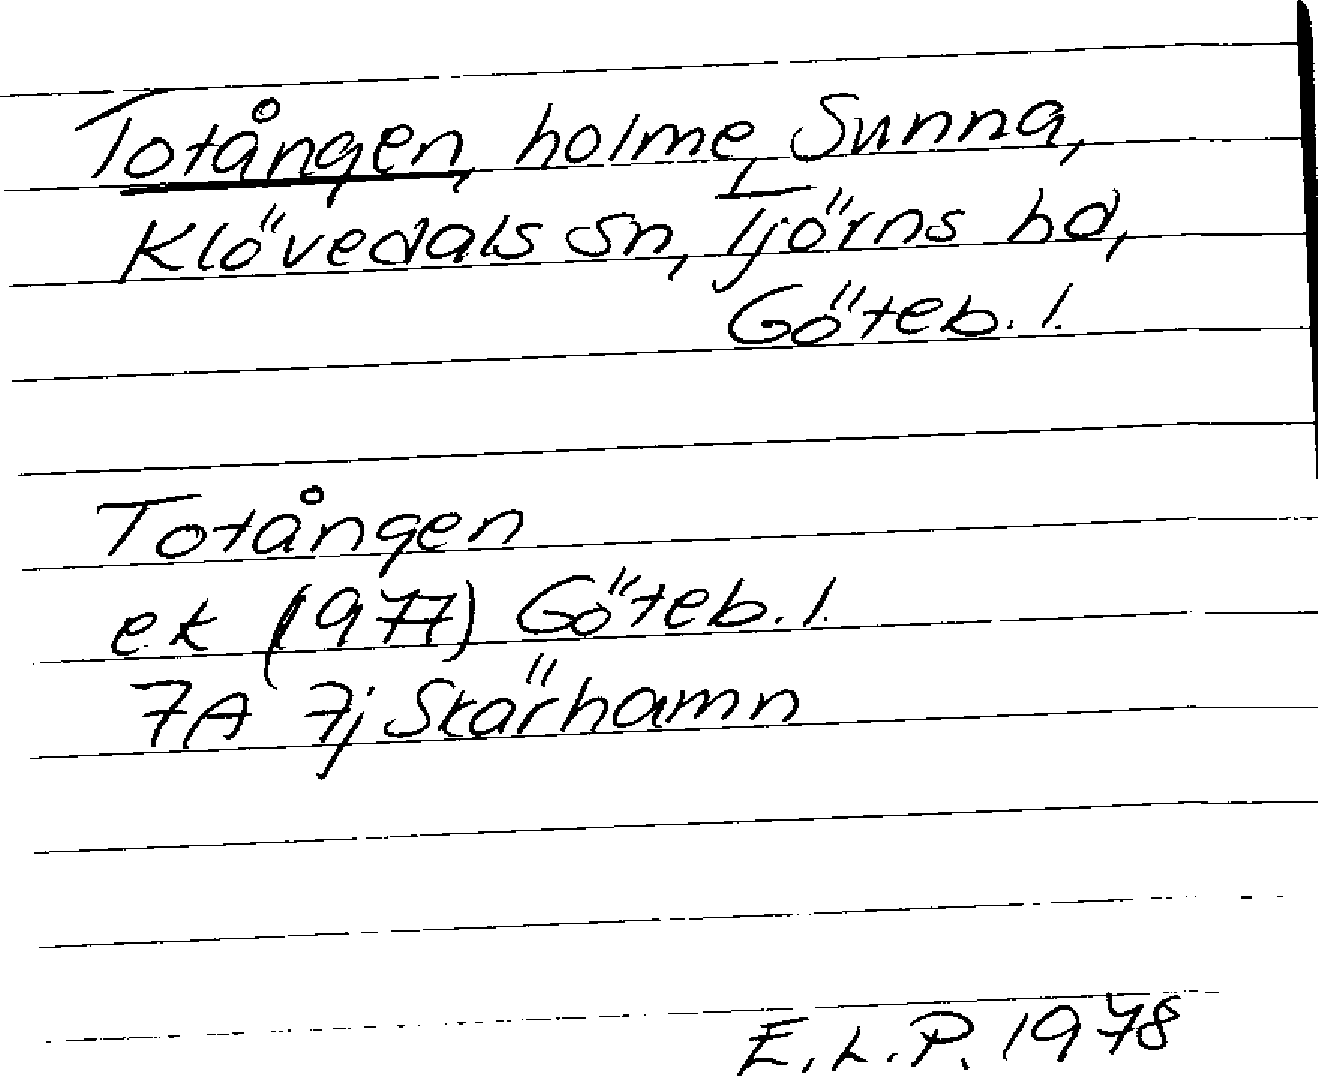 Totången, holme, Sunna,
Klövedals sn, Tjörns hd,
Göteb. l.
Totången
ek (1977) Göteb. l.
7A 7j Skärhamn
E. L. P. 1978